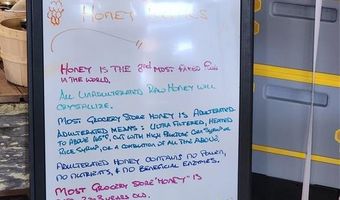 HONEY
HONEY IS THE 3rd MOST FAKED
IN THE WORLD.
ALL UNADULTERATED RAW HONEY WILL
CRYSTALLIZE.
MOST GROCERY STORE HONEY IS ADULTERATED.
ADULTERATED MEANS: ULTRA FILTERED, HEATED
TO ABOVE CUT WITH HIGH FRUCTOSE CORN SYRUP OR
RICE SYRUP, OR A COMBINATION OF ALL THE ABOVE.
ADULTERATED HONEY CONTAINS NO POLLEN,
NO NUTRIENTS, & NO BENEFICIAL ENZYMES.
MOST GROCERY STORE "HONEY" IS
YEARS OLD.